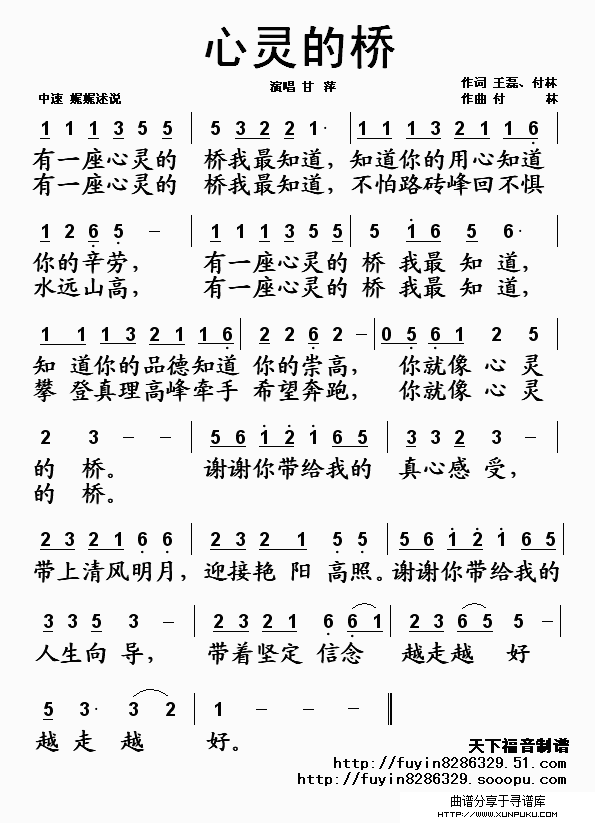 心灵的桥
演唱 甘 萍
作词 王磊、付林
中速 娓娓述说
作曲 付 林
1 1 1 3 5 5 | 5 3 2 2 1· | 1 1 1 3 2 1 1 6 |
有一座心灵的 桥我最知道, 知道你的用心知道
有一座心灵的 桥我最知道, 不怕路砖峰回不惧
1 2 6 5 － | 1 1 1 3 5 5 | 5 1 6 5 6· |
你的辛劳, 有一座心灵的 桥 我最 知 道,
水远山高, 有一座心灵的 桥 我最 知 道,
1 1 1 3 2 1 1 6 | 2 2 6 2 － | 0 5 6 1 2 5 |
知 道你的品德知道 你的崇高, 你就像 心 灵
攀 登真理高峰牵手 希望奔跑, 你就像 心 灵
2 3 － － | 5 6 1 2 1 6 5 | 3 3 2 3 － |
的 桥。 谢谢你带给我的 真心感 受,
的 桥。
2 3 2 1 6 6 | 2 3 2 1 5 5 | 5 6 1 2 1 6 5 |
带上清风明月, 迎接艳 阳 高照。谢谢你带给我的
3 3 5 3 － | 2 3 2 1 6 6 1 | 2 3 6 5 5 |
人生向 导, 带着坚定 信念 越走越 好
5 3· 3 2 | 1 － － ‖
越 走 越 好。
天下福音制谱
http://fuyin8286329.51.com/
http://fuyin8286329.sooopu.com/
曲谱分享于寻谱库
HTTP://WWW.XUNPUKU.COM